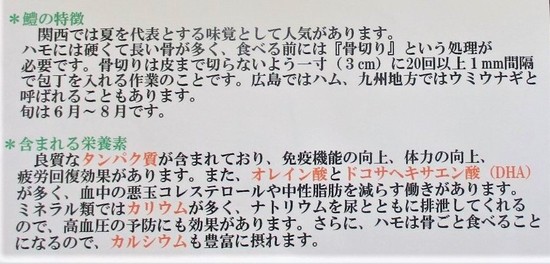 ＊鱧の特徴
関西では夏を代表とする味覚として人気があります。
ハモには硬くて長い骨が多く、食べる前には『骨切り』という処理が
必要です。骨切りは皮まで切らないよう一寸（３㎝）に20回以上１mm間隔
で包丁を入れる作業のことです。広島ではハム、九州地方ではウミウナギと
呼ばれることもあります。
旬は６月～８月です。
＊含まれる栄養素
良質なタンパク質が含まれており、免疫機能の向上、体力の向上、
疲労回復効果があります。また、オレイン酸とドコサヘキサエン酸（DHA）
が多く、血中の悪玉コレステロールや中性脂肪を減らす働きがあります。
ミネラル類ではカリウムが多く、ナトリウムを尿とともに排泄してくれる
ので、高血圧の予防にも効果があります。さらに、ハモは骨ごと食べること
になるので、カルシウムも豊富に摂れます。